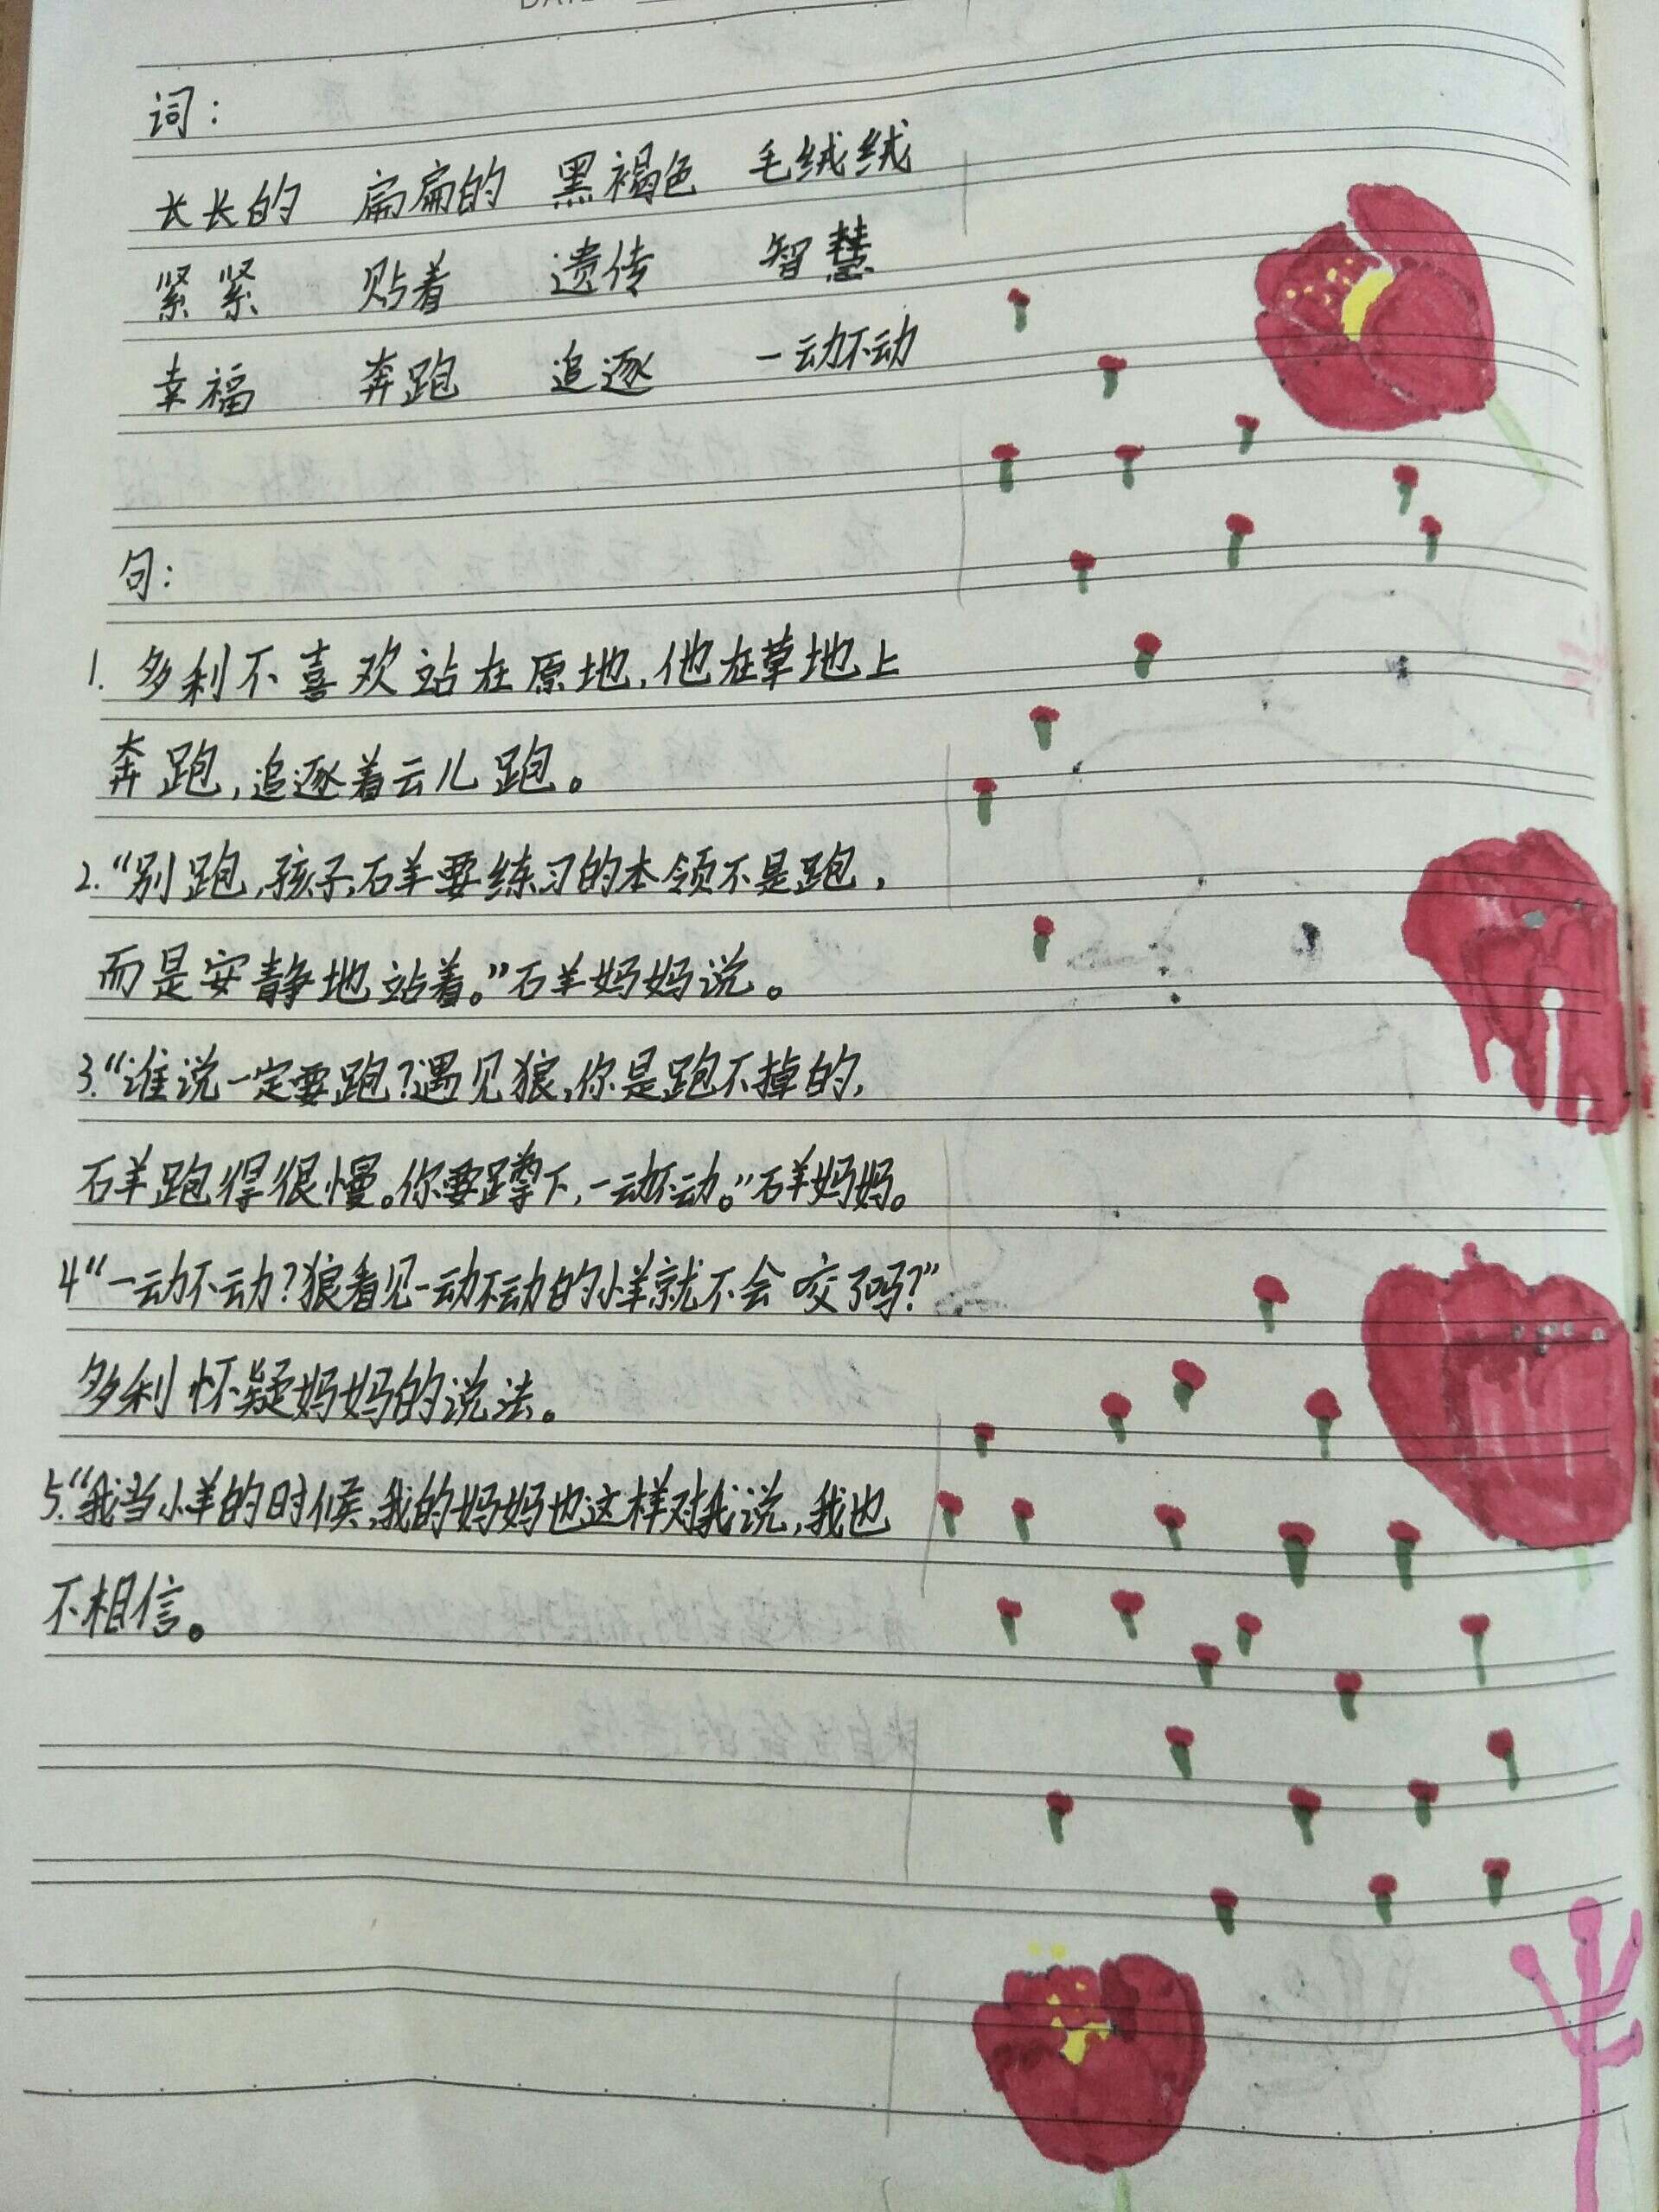 词：
长长的 扁扁的 黑褐色 毛绒绒
紧紧 贴着 遗传 智慧
幸福 奔跑 追逐 一动不动
句：
1. 多利不喜欢站在原地，他在草地上
奔跑，追逐着云儿跑。
2.“别跑，孩子，石羊要练习的本领不是跑，
而是安静地站着。”石羊妈妈说。
3.“谁说一定要跑？遇见狼，你是跑不掉的，
石羊跑得很慢。你要蹲下，一动不动。”石羊妈妈。
4“一动不动？狼看见一动不动的小羊就不会咬了吗？”
多利怀疑妈妈的说法。
5.“我当小羊的时候，我的妈妈也这样对我说，我也
不相信。